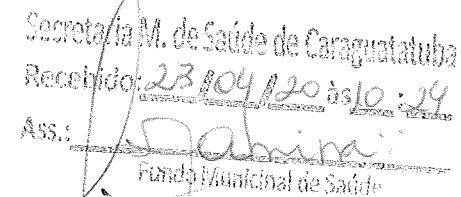 Secretaria M. de Saúde de Caraguatatuba
Recebido: 23/04/20 às 10:24
Ass.:
Fundo Municipal de Saúde